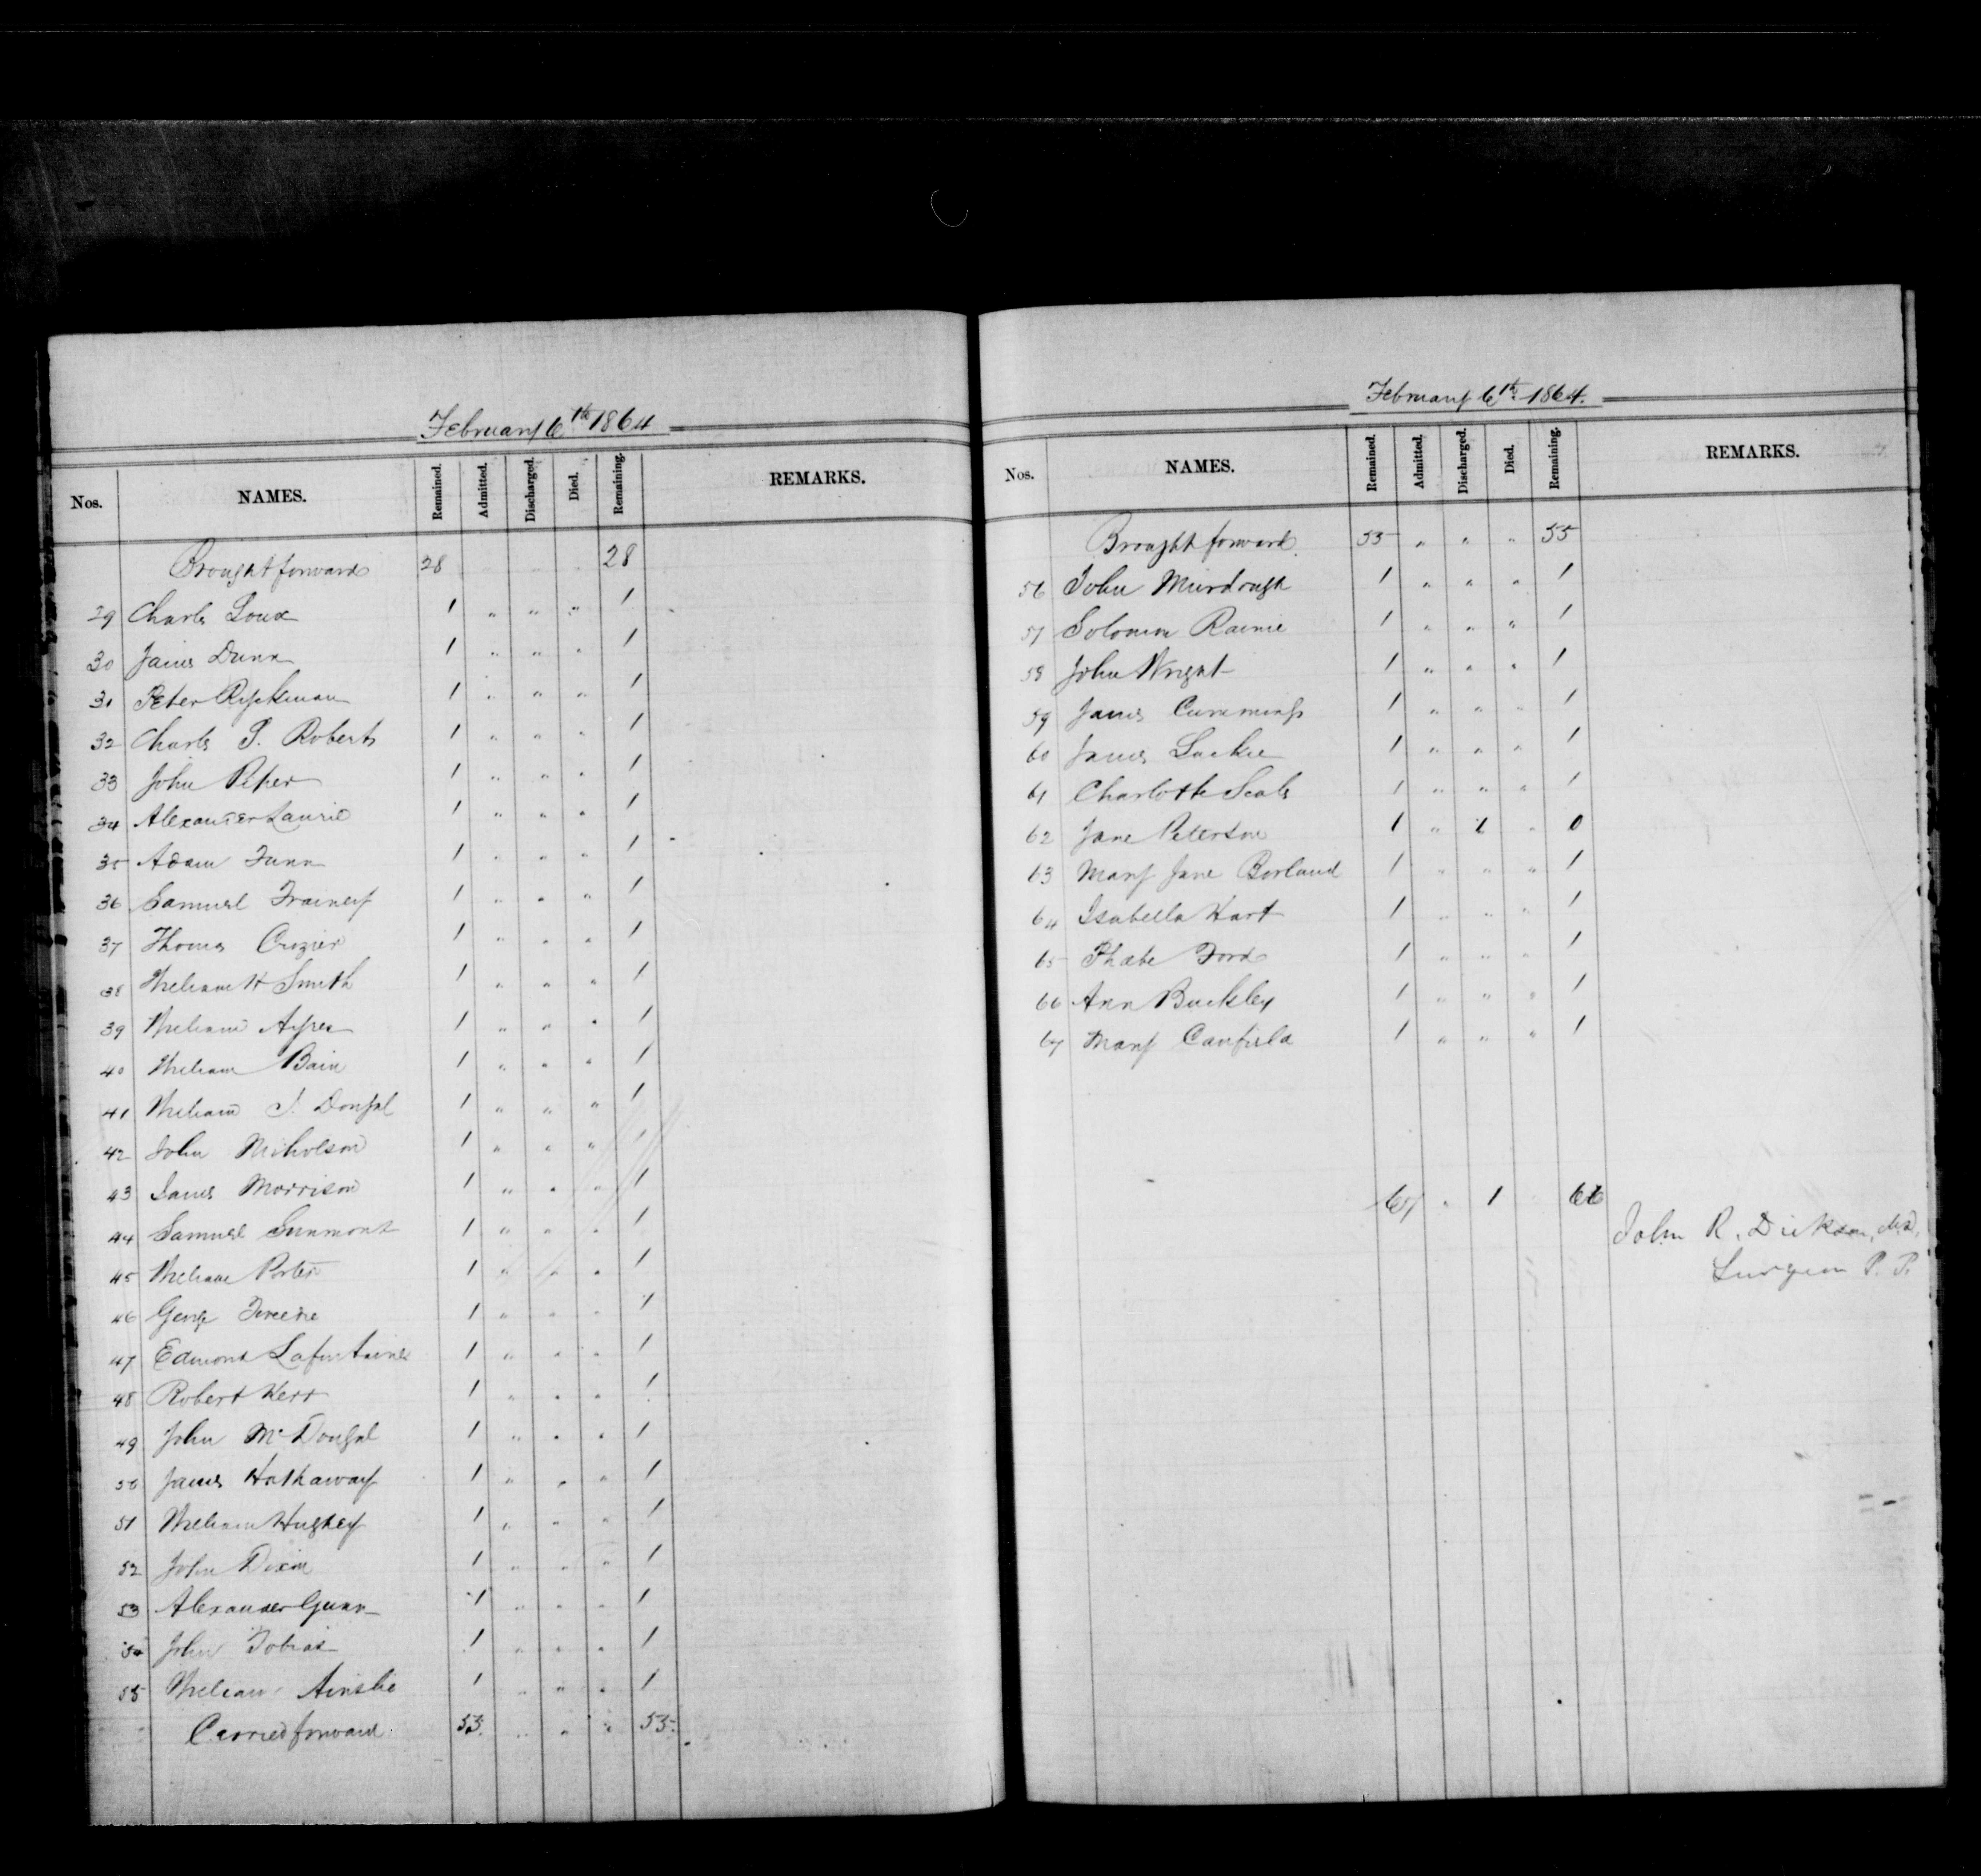 February 6th 1864
Nos. NAMES. Remained. Admitted. Discharged. Died. Remaining. REMARKS.
Brought forward 28 28
29 Charles Loux 1 " " " 1
30 James Dunn 1 " " " 1
31 Peter Ryckman 1 " " " 1
32 Charles S. Roberts 1 " " " 1
33 John Peper 1 " " " 1
34 Alexander Laurie 1 " " " 1
35 Adam Funn 1 " " " 1
36 Samuel Trainey 1 " " " 1
37 Thomas Crozier 1 " " " 1
38 William H Smith 1 " " " 1
39 William Ayres 1 " " " 1
40 William Bain 1 " " " 1
41 William J. Dougal 1 " " " 1
42 John Nicholson 1 " " " 1
43 James Morrison 1 " " " 1
44 Samuel 1 " " " 1
45 William Porter 1 " " " 1
46 George Tweedie 1 " " " 1
47 Edmond Lafontaine 1 " " " 1
48 Robert Kerr 1 " " " 1
49 John McDougal 1 " " " 1
50 James Hathaway 1 " " " 1
51 William Hughey 1 " " " 1
52 John Dixon 1 " " " 1
53 Alexander Gunn 1 " " " 1
54 John Tobias 1 " " " 1
55 William Ainslie 1 " " " 1
Carried forward 55 " " " 55
February 6th 1864.
Nos. NAMES. Remained. Admitted. Discharged. Died. Remaining. REMARKS.
Brought forward 55 " " " 55
56 John Murdough 1 " " " 1
57 Solomon Rainie 1 " " " 1
58 John Wright 1 " " " 1
59 James Cummings 1 " " " 1
60 James Lackie 1 " " " 1
61 Charlotte Seals 1 " " " 1
62 Jane Peterson 1 " 1 " 0
63 Mary Jane Borland 1 " " " 1
64 Isabella Hart 1 " " " 1
65 Phœbe Ford 1 " " " 1
66 Ann Buckley 1 " " " 1
67 Mary Canfield 1 " " " 1
67 " 1 66
John R. Dickson, M.D,
Surgeon P. P.